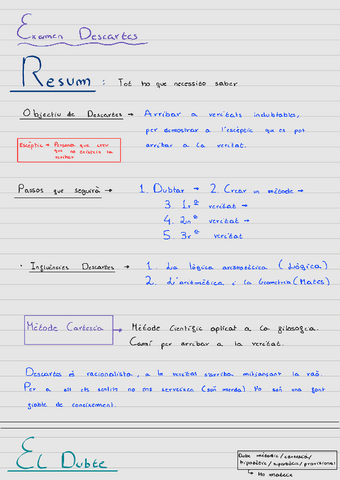 Examen Descartes
Resum : Tot lo que necessito saber
Objectiu de Descartes → Arribar a veritats indubtables,
per demostrar a l'escèptic que es pot
arribar a la veritat.
Escèptic → Persona que creu
que no existeix la
veritat
Passos que seguirà → 1. Dubtar → 2. Crear un mètode →
3. 1rª veritat →
4. 2nª veritat →
5. 3rª veritat
· Influències Descartes → 1. La lògica aristotèlica (Lògica)
2. L'aritmètica i la Geometria (Mates)
Mètode Cartesià → Mètode Científic aplicat a la filosofia.
Camí per arribar a la veritat.
Descartes és racionalista, a la veritat s'arriba mitjançant la raó.
Per a ell els sentits no ens serveixen (son merda) No són una font
fiable de coneixement.
El Dubte
Dubte metòdic / cartesià /
hipotètic / hiperbòlic / provisional